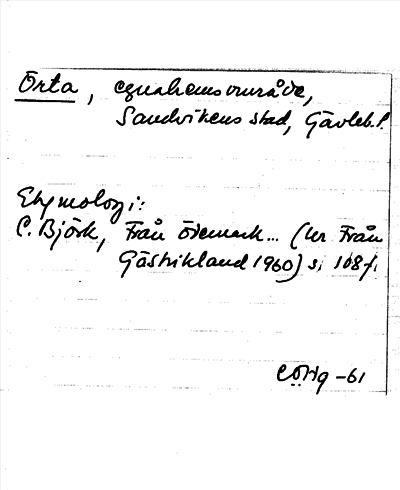 Örta, egnahemsområde,
Sandvikens stad, Gävleb. l.
Etymologi:
C. Björk, Från Ödemark... (ur Från
Gästrikland 1960) s. 108 f.
CÖHg -61